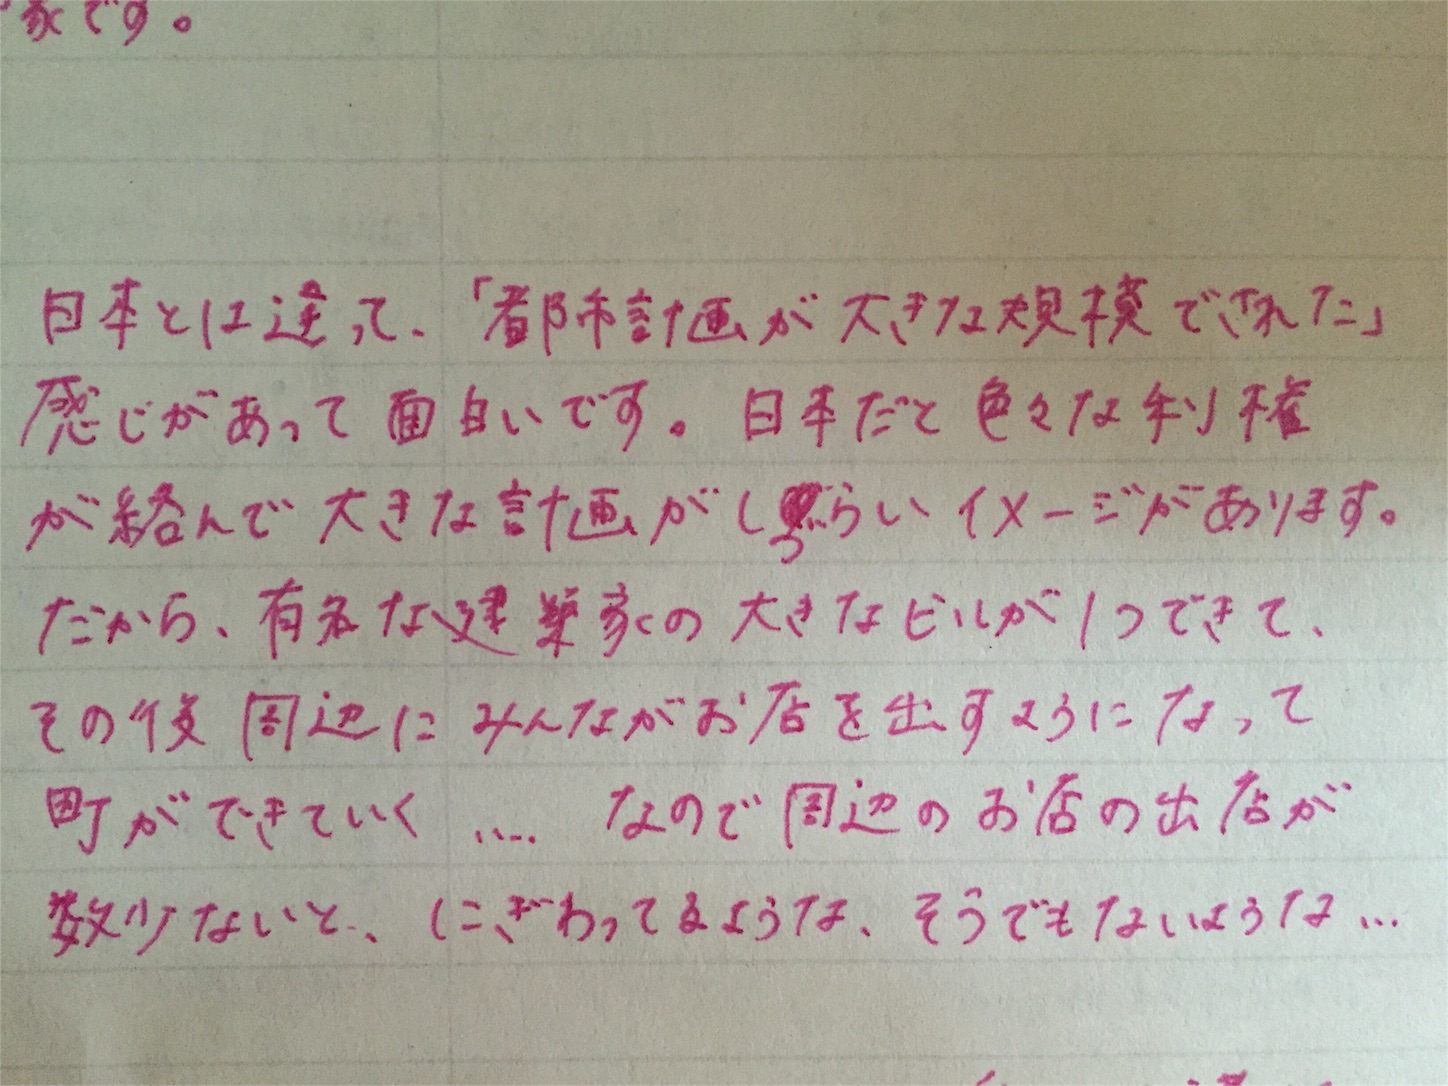 家です。
日本とは違って、「都市計画が大きな規模でされた」
感じがあって面白いです。日本だと色々な利権
が絡んで大きな計画がしづらいイメージがあります。
だから、有名な建築家の大きなビルが1つできて、
その後周辺にみんながお店を出すようになって
町ができていく ‥‥ なので周辺のお店の出店が
数少ないと、にぎわってるような、そうでもないような…